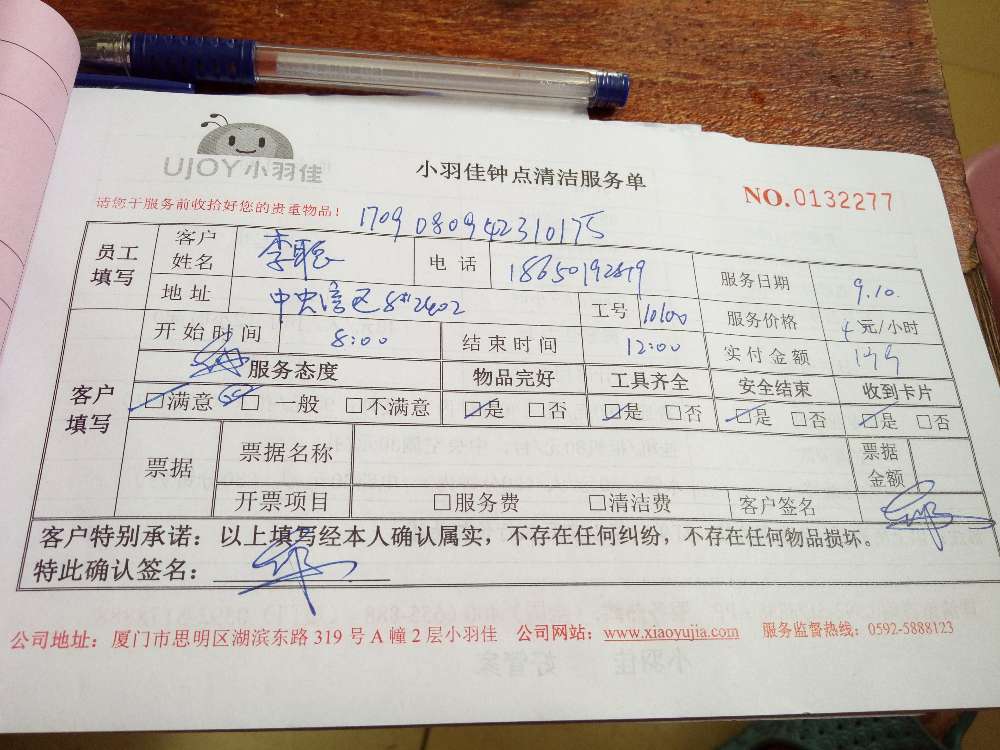 UJOY小羽佳
小羽佳钟点清洁服务单
NO.0132277
请您于服务前收拾好您的贵重物品!
1709080942310175
员工填写 客户姓名 李聪 电话 服务日期 9.10.
地址 中央湾区8#2402 工号 10100 服务价格 4元/小时
客户填写 开始时间 8:00 结束时间 12:00 实付金额
服务态度 物品完好 工具齐全 安全结束 收到卡片
☑满意 □一般 □不满意 ☑是 □否 ☑是 □否 ☑是 □否 ☑是 □否
票据 票据名称 票据金额
开票项目 □服务费 □清洁费 客户签名
客户特别承诺:以上填写经本人确认属实,不存在任何纠纷,不存在任何物品损坏。
特此确认签名:
公司地址:厦门市思明区湖滨东路319号A幢2层小羽佳 公司网站:www.xiaoyujia.com 服务监督热线:0592-5888123